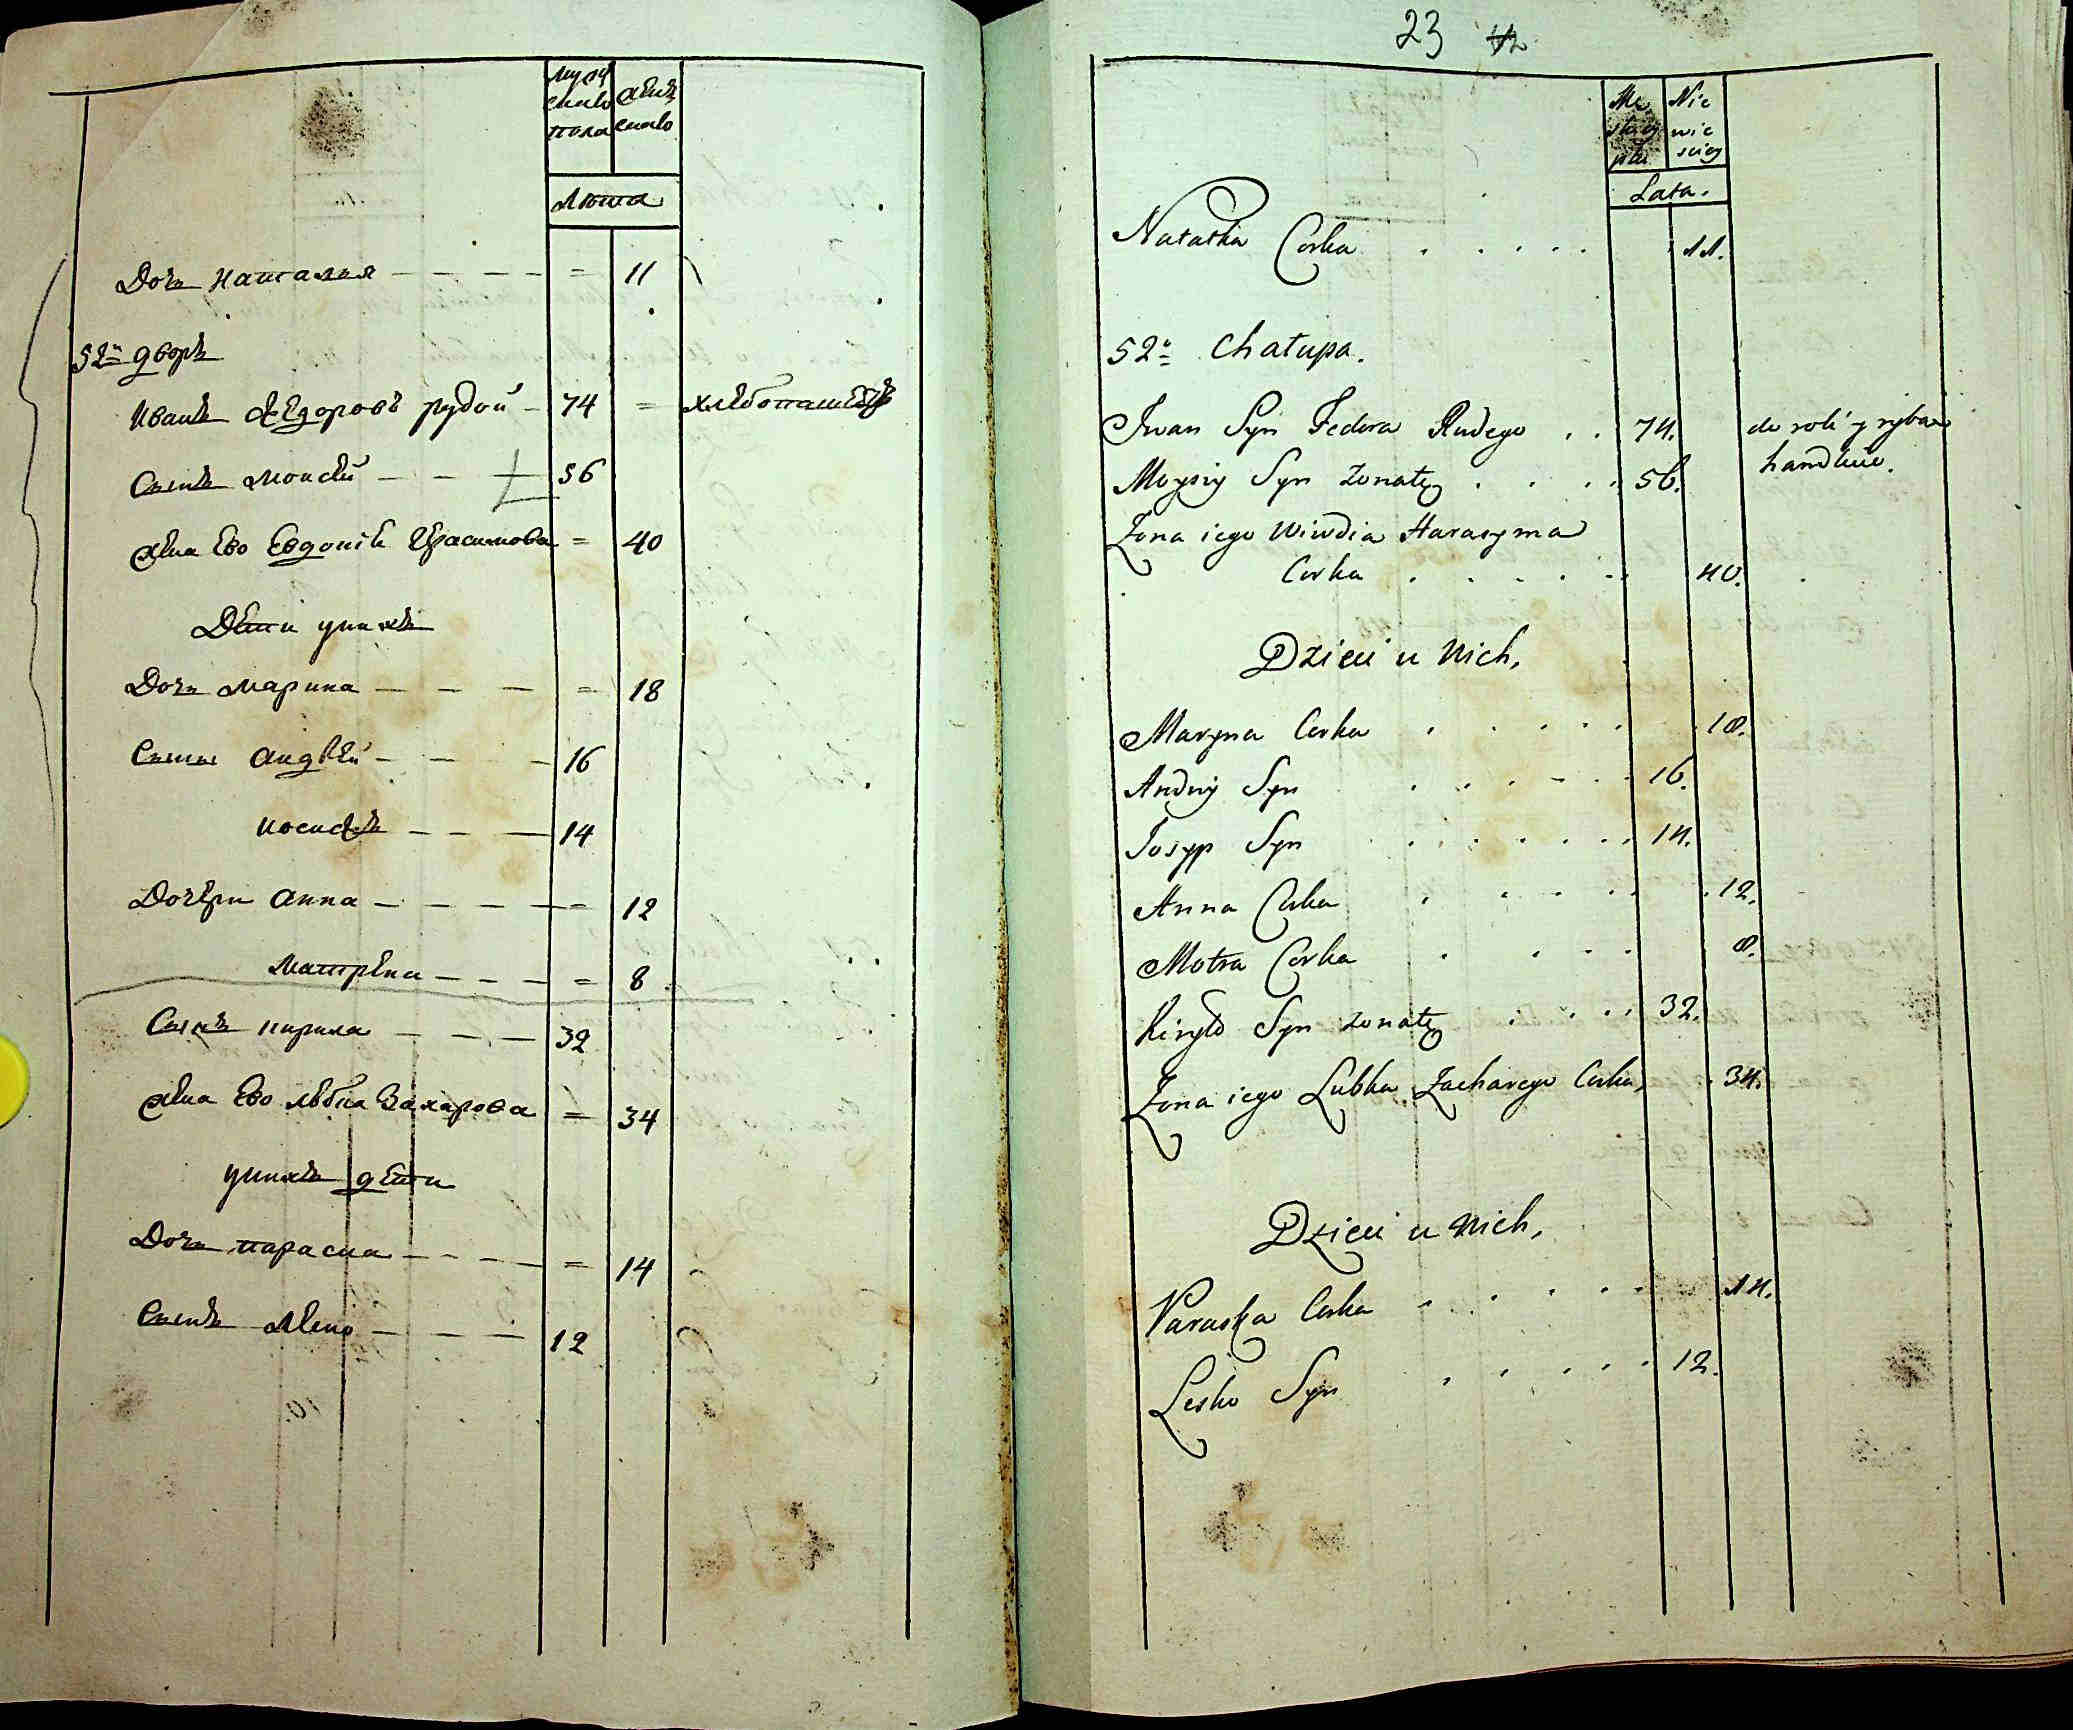 мужескаго пола
женскаго
Лета
Дочь Наталья - - - - = 11
52й дворъ
Иванъ Федоровъ рудой - 74 = хлебопашецъ
Сынъ Моисей - - 56
жена Ево Евдокия Герасимова = 40
Дети у нихъ
Дочь Марина - - - = 18
Сыны андрей - - - 16
иосифъ - - - 14
Дочери анна - - - - = 12
матрена - - - - = 8
Сынъ кирила - - - 32
жена Ево любка Захарова = 34
у нихъ дети
Дочь параска - - - - = 14
Сынъ Леско - - - 12
23
Męskiey płci
Nie wie sciey
Lata.
Natalka Corka . . . . . 11.
52a Chałupa.
Iwan Syn Fedora Rudego . . 74. do roli y rybami
handluie.
Moysiy Syn żonaty . . . . 56.
Żona iego Wiwdia Harasyma
Corka . . . . . 40.
Dzieci u Nich,
Maryna Corka . . . . . 18.
Andriy Syn . . . . . 16.
Iosyp Syn . . . . . . . 14.
Anna Corka . . . . . 12.
Motra Corka . . . . 8.
Kiryło Syn żonaty . . . . 32.
Żona iego Lubka Zacharego Corka . 34.
Dzieci u Nich,
Paraska Corka . . . . . 14.
Lesko Syn . . . . . 12.